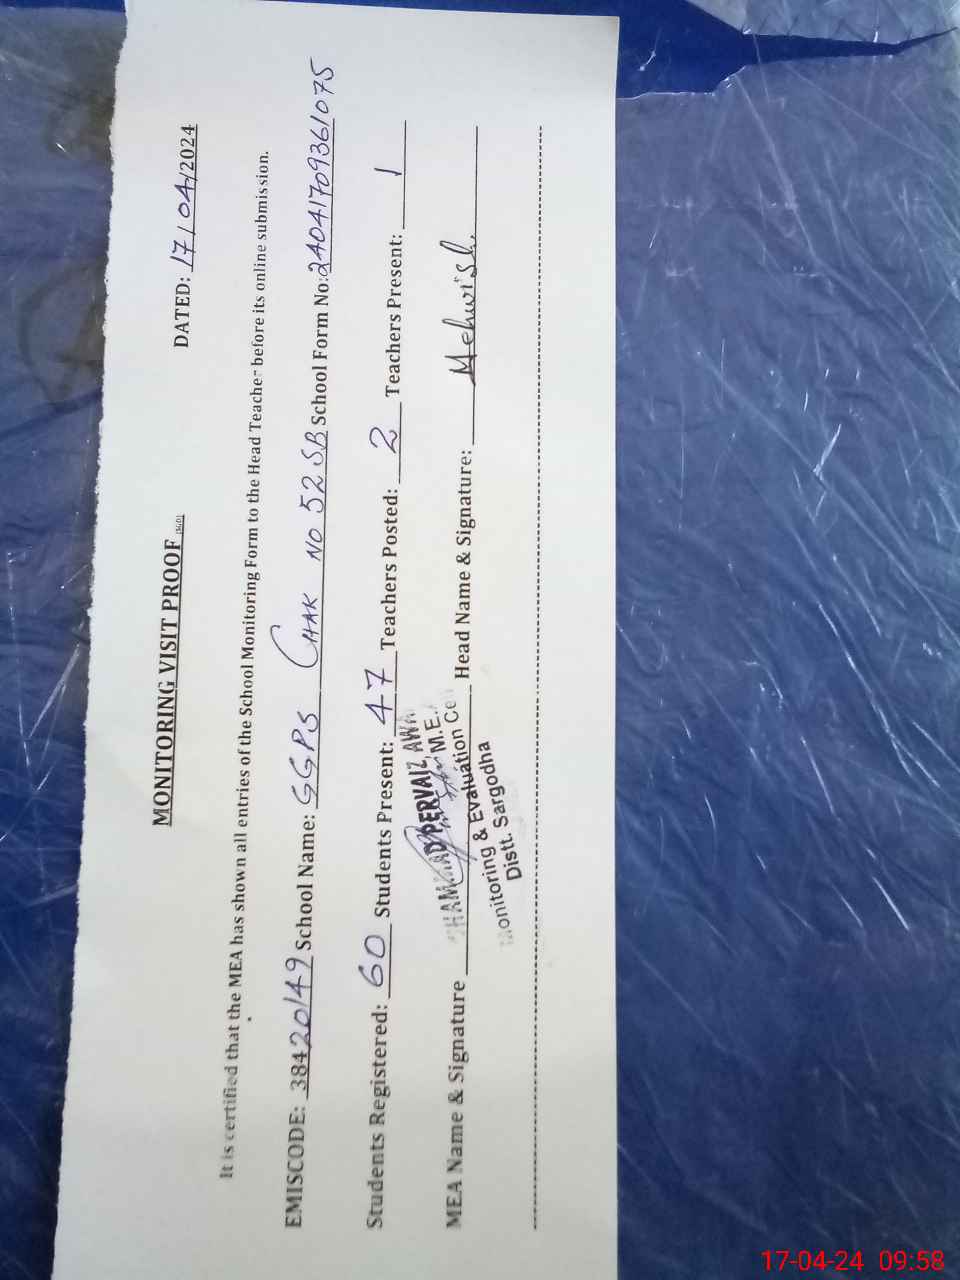 MONITORING VISIT PROOF (SGD)
DATED: 17/04/2024
It is certified that the MEA has shown all entries of the School Monitoring Form to the Head Teacher before its online submission.
EMISCODE: 38420149 School Name: GGPS CHAK NO 52 SB School Form No: 24041709361075
Students Registered: 60 Students Present: 47 Teachers Posted: 2 Teachers Present: 1
MEA Name & Signature Head Name & Signature: Mehwish.
PERVAIZ AWA
M.E.
onitoring & Evaluation Ce
Distt. Sargodha
17-04-24 09:58